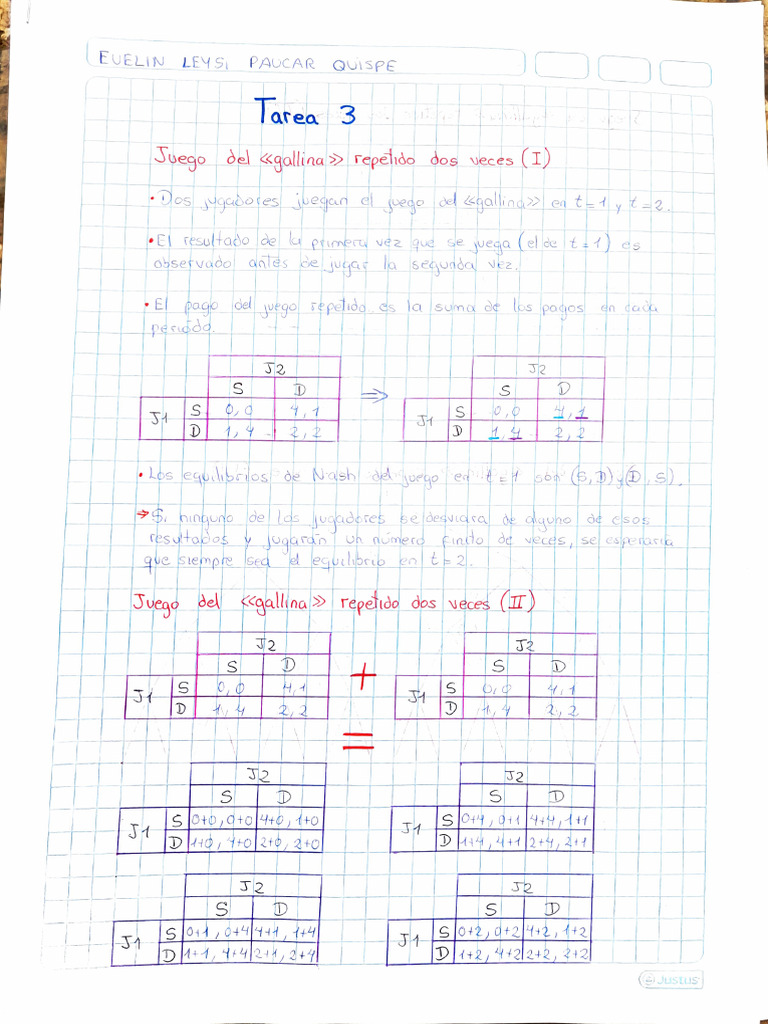 EUELIN LEYSI PAUCAR QUISPE
Tarea 3
Juego del «gallina» repetido dos veces (I)
• Dos jugadores juegan el juego del «gallina» en t=1 y t=2.
• El resultado de la primera vez que se juega (el de t=1) es
observado antes de jugar la segunda vez.
• El pago del juego repetido es la suma de los pagos en cada
periodo.
J2 J2
S D ⇒ S D
J1 S 0,0 4,1 J1 S 0,0 4,1
D 1,4 2,2 D 1,4 2,2
• Los equilibrios de Nash del juego en t=1 son (S,D) y (D,S).
→ Si ninguno de los jugadores se desviara de alguno de esos
resultados y jugarán un número finito de veces, se esperaría
que siempre sea el equilibrio en t=2.
Juego del «gallina» repetido dos veces (II)
J2 J2
S D + S D
J1 S 0,0 4,1 J1 S 0,0 4,1
D 1,4 2,2 D 1,4 2,2
=
J2 J2
S D S D
J1 S 0+0, 0+0 4+0, 1+0 J1 S 0+4, 0+1 4+4, 1+1
D 1+0, 4+0 2+0, 2+0 D 1+4, 4+1 2+4, 2+1
J2 J2
S D S D
J1 S 0+1, 0+4 4+1, 1+4 J1 S 0+2, 0+2 4+2, 1+2
D 1+1, 4+4 2+1, 2+4 D 1+2, 4+2 2+2, 2+2
Justus